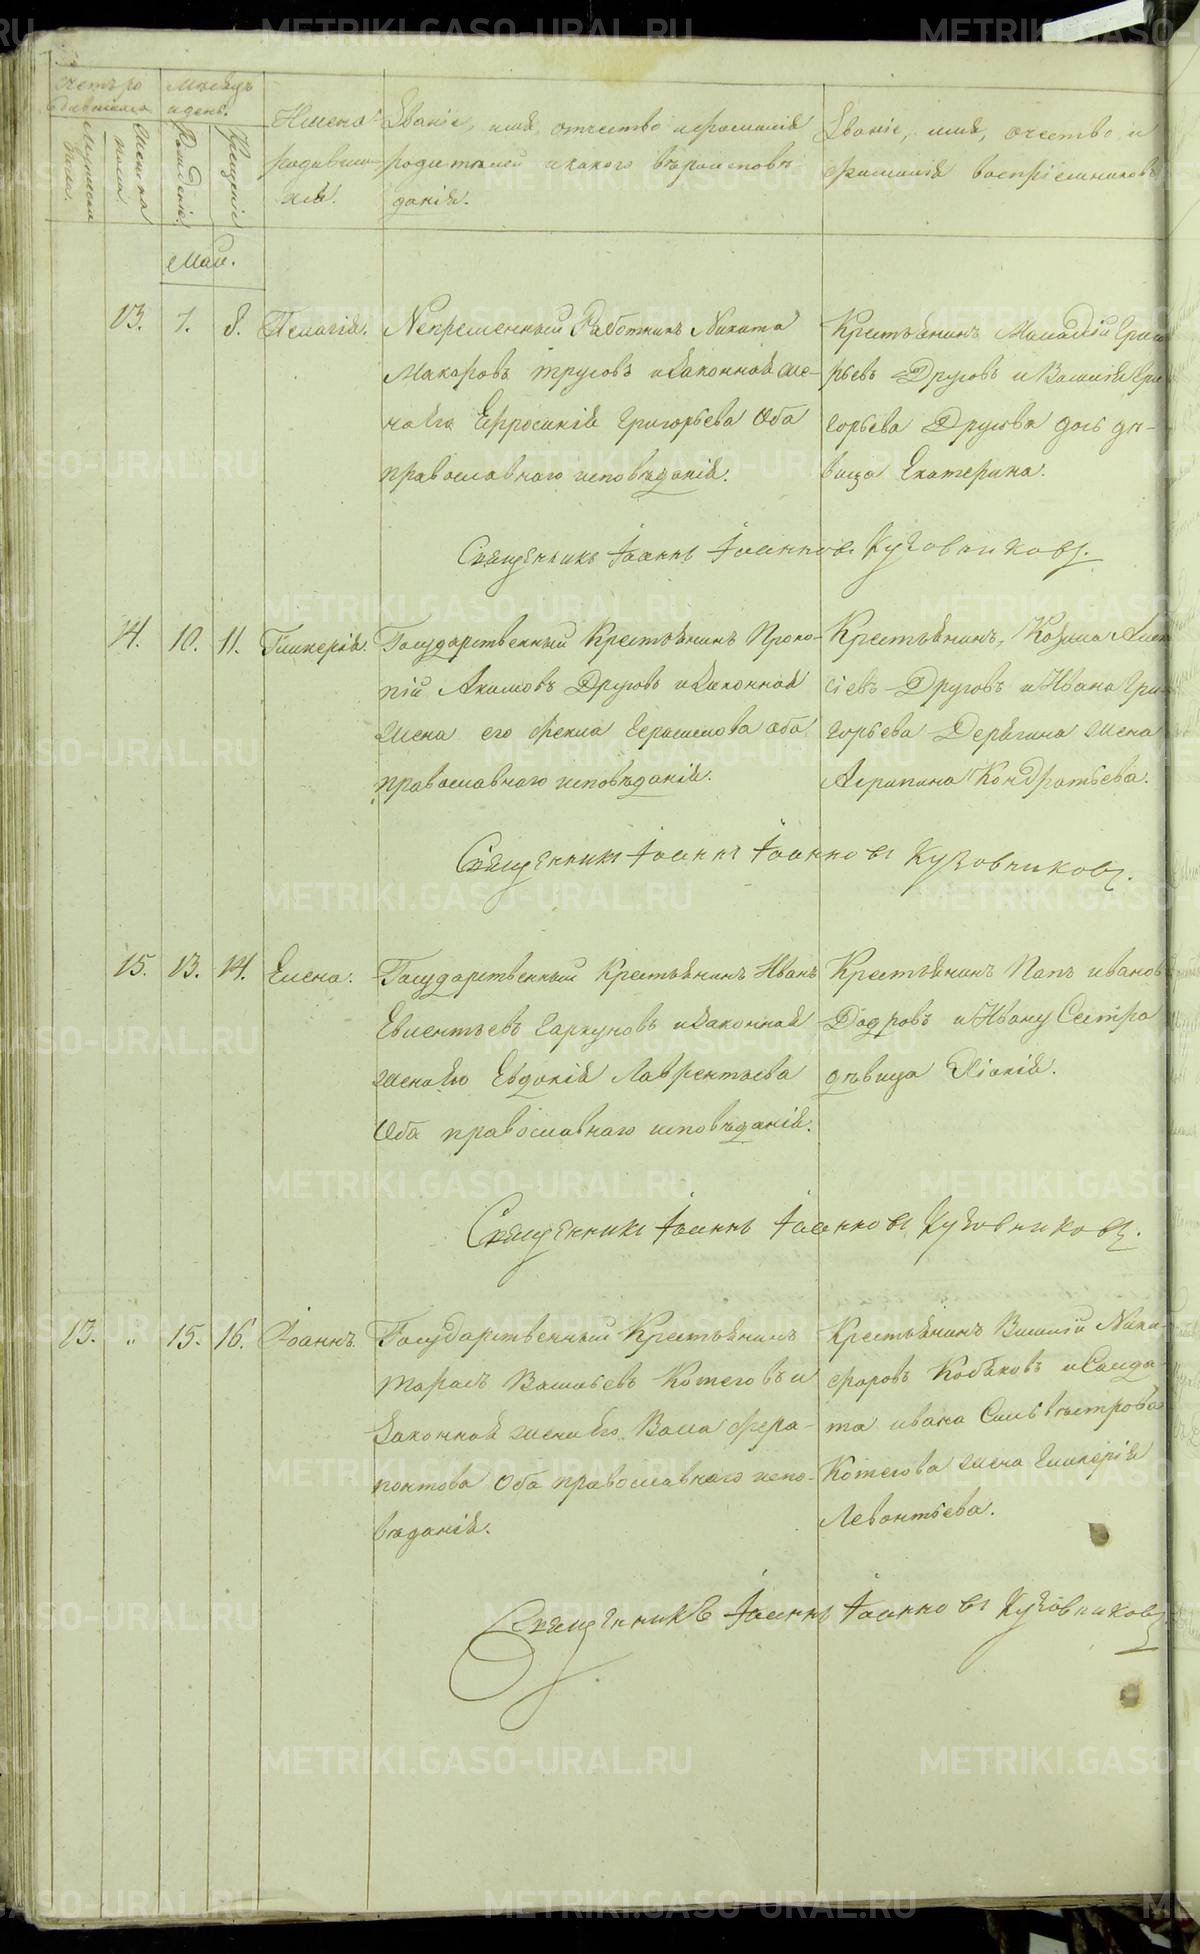 Счетъ ро
дившихся
Мѣсяцъ
и день.
Мужеска
пола.
Женска
пола.
Рожденія.
Крещенія.
Имена
родивших
ся.
Званіе, имя, отчество и фамилія
родителей и какого вѣроисповѣ
данія.
Званіе, имя, отчество и
фамилія воспріемниковъ
Маіи.
13. 7. 8. Пелагія.
Непременный Работникъ Никита
Макаровъ Друговъ и Законная же-
на Его Ефросинія Григорьева Оба
православнаго исповѣданія.
Крестьянинъ Григо
рьевъ Друговъ и Василія Гри
горьева Другова дочь дѣ-
вица Екатерина.
Священникъ Іоаннъ Іоанновъ Кузовниковъ.
14. 10. 11. Гликерія.
Государственный Крестьянинъ Проко-
пій Акимовъ Друговъ и Законная
жена его Фекла Герасимова оба
православнаго исповѣданія.
Крестьянинъ, Козьма Алек
сіевъ Друговъ и Ивана Гри
горьева Дерягина жена
Агрипина Кондратьева.
Священникъ Іоаннъ Іоанновъ Кузовниковъ.
15. 13. 14. Елена.
Государственный Крестьянинъ Иванъ
Евлентьевъ Гаркуновъ и Законная
жена Его Евдокія Лаврентьева
Оба православнаго исповѣданія.
Крестьянинъ иванов
и Ивану Сестра
дѣвица
Священникъ Іоаннъ Іоанновъ Кузовниковъ.
13. „ 15. 16. Іоаннъ.
Государственный Крестьянинъ
Тарасъ Васильевъ Котеговъ и
Законная жена Его Васа Фера-
понтова Оба православнаго испо-
вѣданія.
Крестьянинъ Василій Ники-
форовъ Кобяковъ и Солда-
та ивана Сильвѣстрова
Котегова жена Гликерія
Левонтьева.
Священникъ Іоаннъ Іоанновъ Кузовниковъ
METRIKI.GASO-URAL.RU